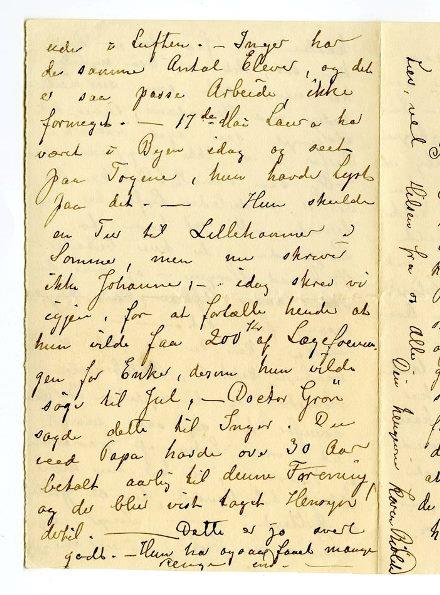 ude i Luften. – Inger har
de samme Antal Elever, og det
er saa passe Arbeide ikke
formeget. – 17de Mai Laura har
været i Byen idag og seet
paa Togene, hun havde Lyst
paa det. – Hun skulde
en Tur til Lillehammer i
Sommer, men nu skrev
ikke Johanne; – idag skrev vi
igjen, for at fortælle hende at
hun vilde faa 200 Kr af Lægeforenin-
gen for Enker, dersom hun vilde
søge til Jul, – Doctor Grön
sagde dette til Inger. Du
veed Papa havde over 30 Aar
betalt aarlig til denne Forening,
og de blir vist taget Hensyn
dertil. – Dette er jo svært
godt. – Hun har ogsaa faaet mange
Penge ind –
vel Hilsen fra os Alle Din hengivne